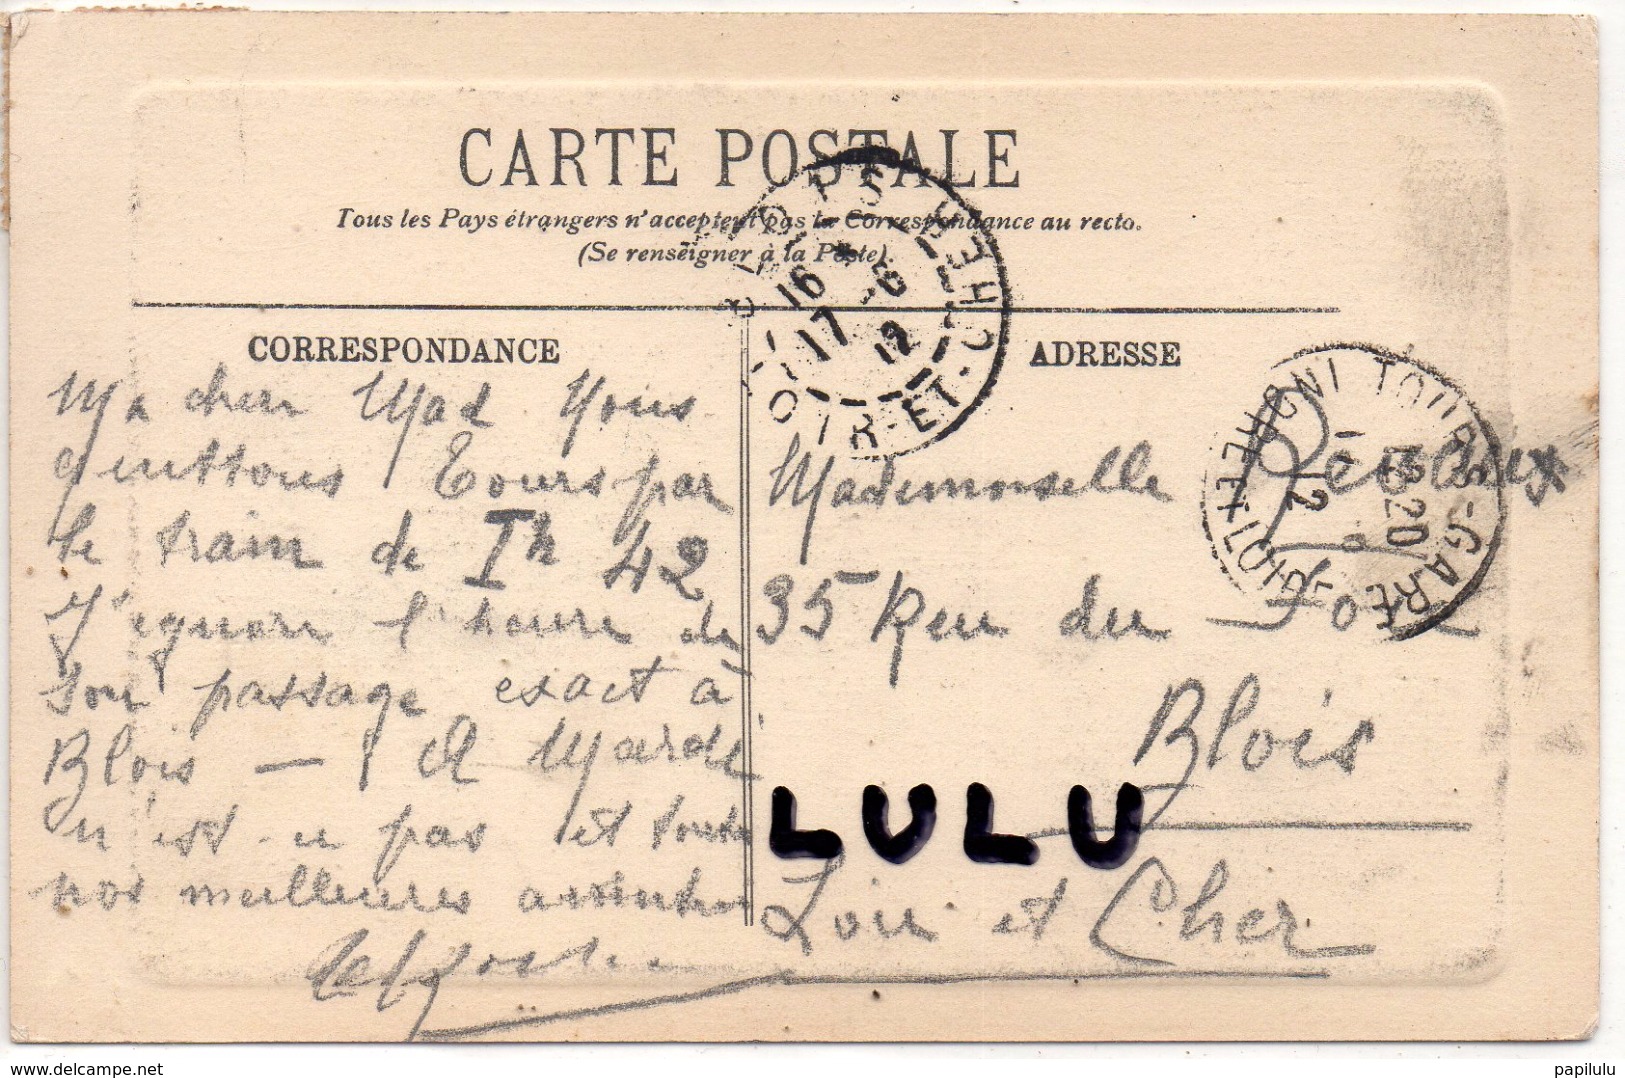 CARTE POSTALE
Tous les Pays étrangers n'acceptent pas la Correspondance au recto.
(Se renseigner à la Poste).
CORRESPONDANCE
Ma cher Mad Nous
quittons Tours par
le train de 1h 42
J'ignore l'heure de
son passage exact à
Blois — A Mardi
n'est-ce pas et toutes
nos meilleures amitiés
ADRESSE
Mademoiselle
35 Reu du Foix
Blois
Loir et Cher
BLOIS
LOIR-ET-CHER
16 -6
17 12
TOURS-GARE
INDRE ET LOIRE
18 20
12
LULU
www.delcampe.net
papilulu